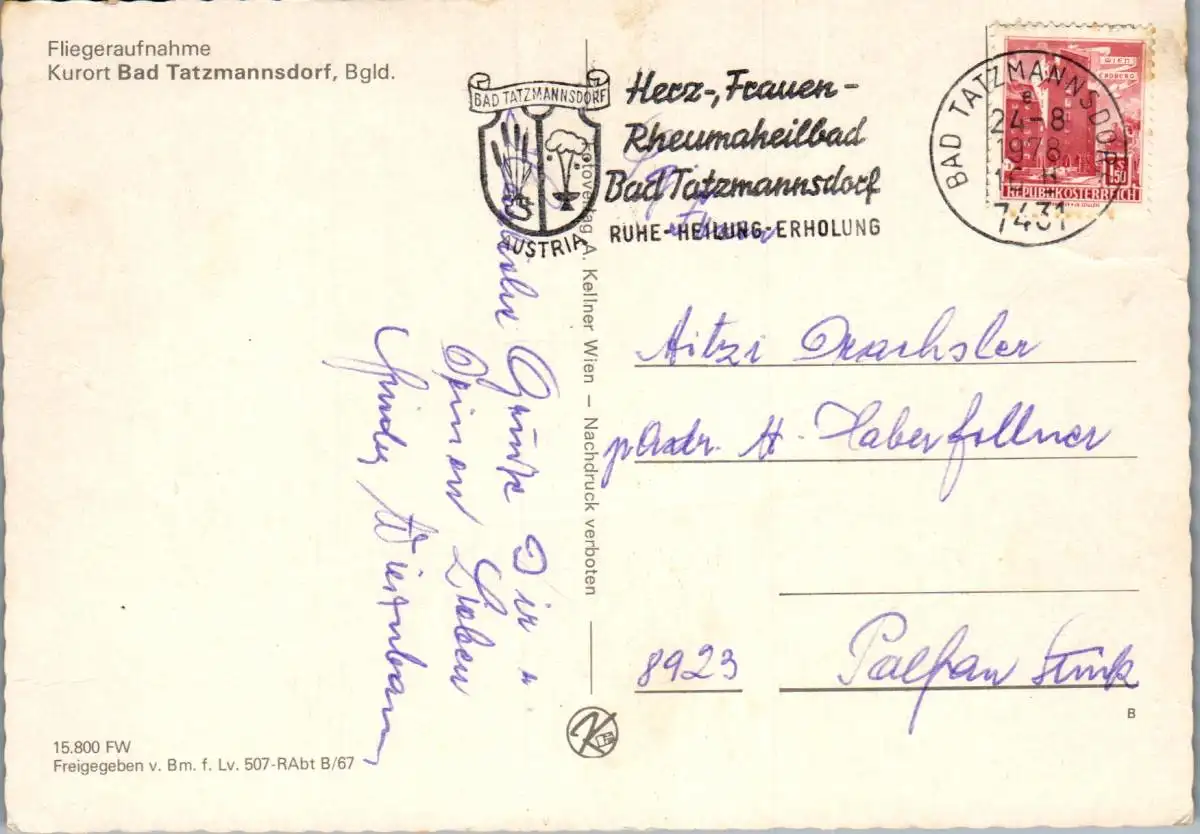 Fliegeraufnahme
Kurort Bad Tatzmannsdorf, Bgld.
BAD TATZMANNSDORF
AUSTRIA
Herz-, Frauen-
Rheumaheilbad
Bad Tatzmannsdorf
RUHE-HEILUNG-ERHOLUNG
BAD TATZMANNSDORF
24-8
1978
7431
WIEN
ERDBERG
S 1.50
REPUBLIK ÖSTERREICH
Fotoverlag A. Kellner Wien – Nachdruck verboten
Grüße Dir u
Deinen Lieben
Haberfellner
8923
Palfau
B
15.800 FW
Freigegeben v. Bm. f. Lv. 507-RAbt B/67